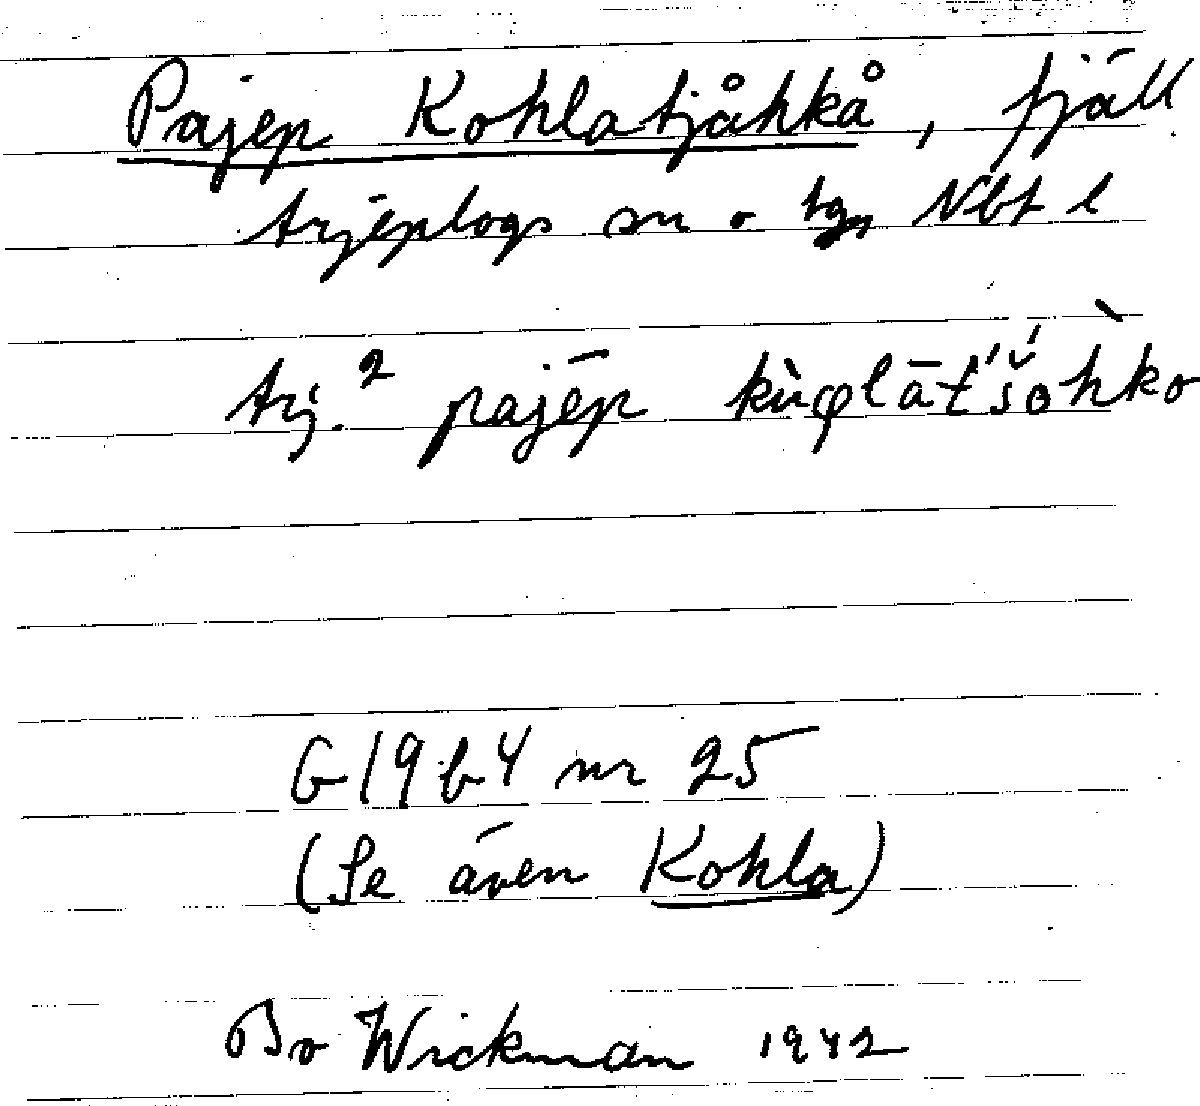 Pajep Kohlatjåhkå, fjäll
Arjeplogs sn o tg, Nbt l
Arj.² pajēp kùφlāt́'š́òhko
G 19 b 4 nr 25
(Se även Kohla)
Bo Wickman 1942